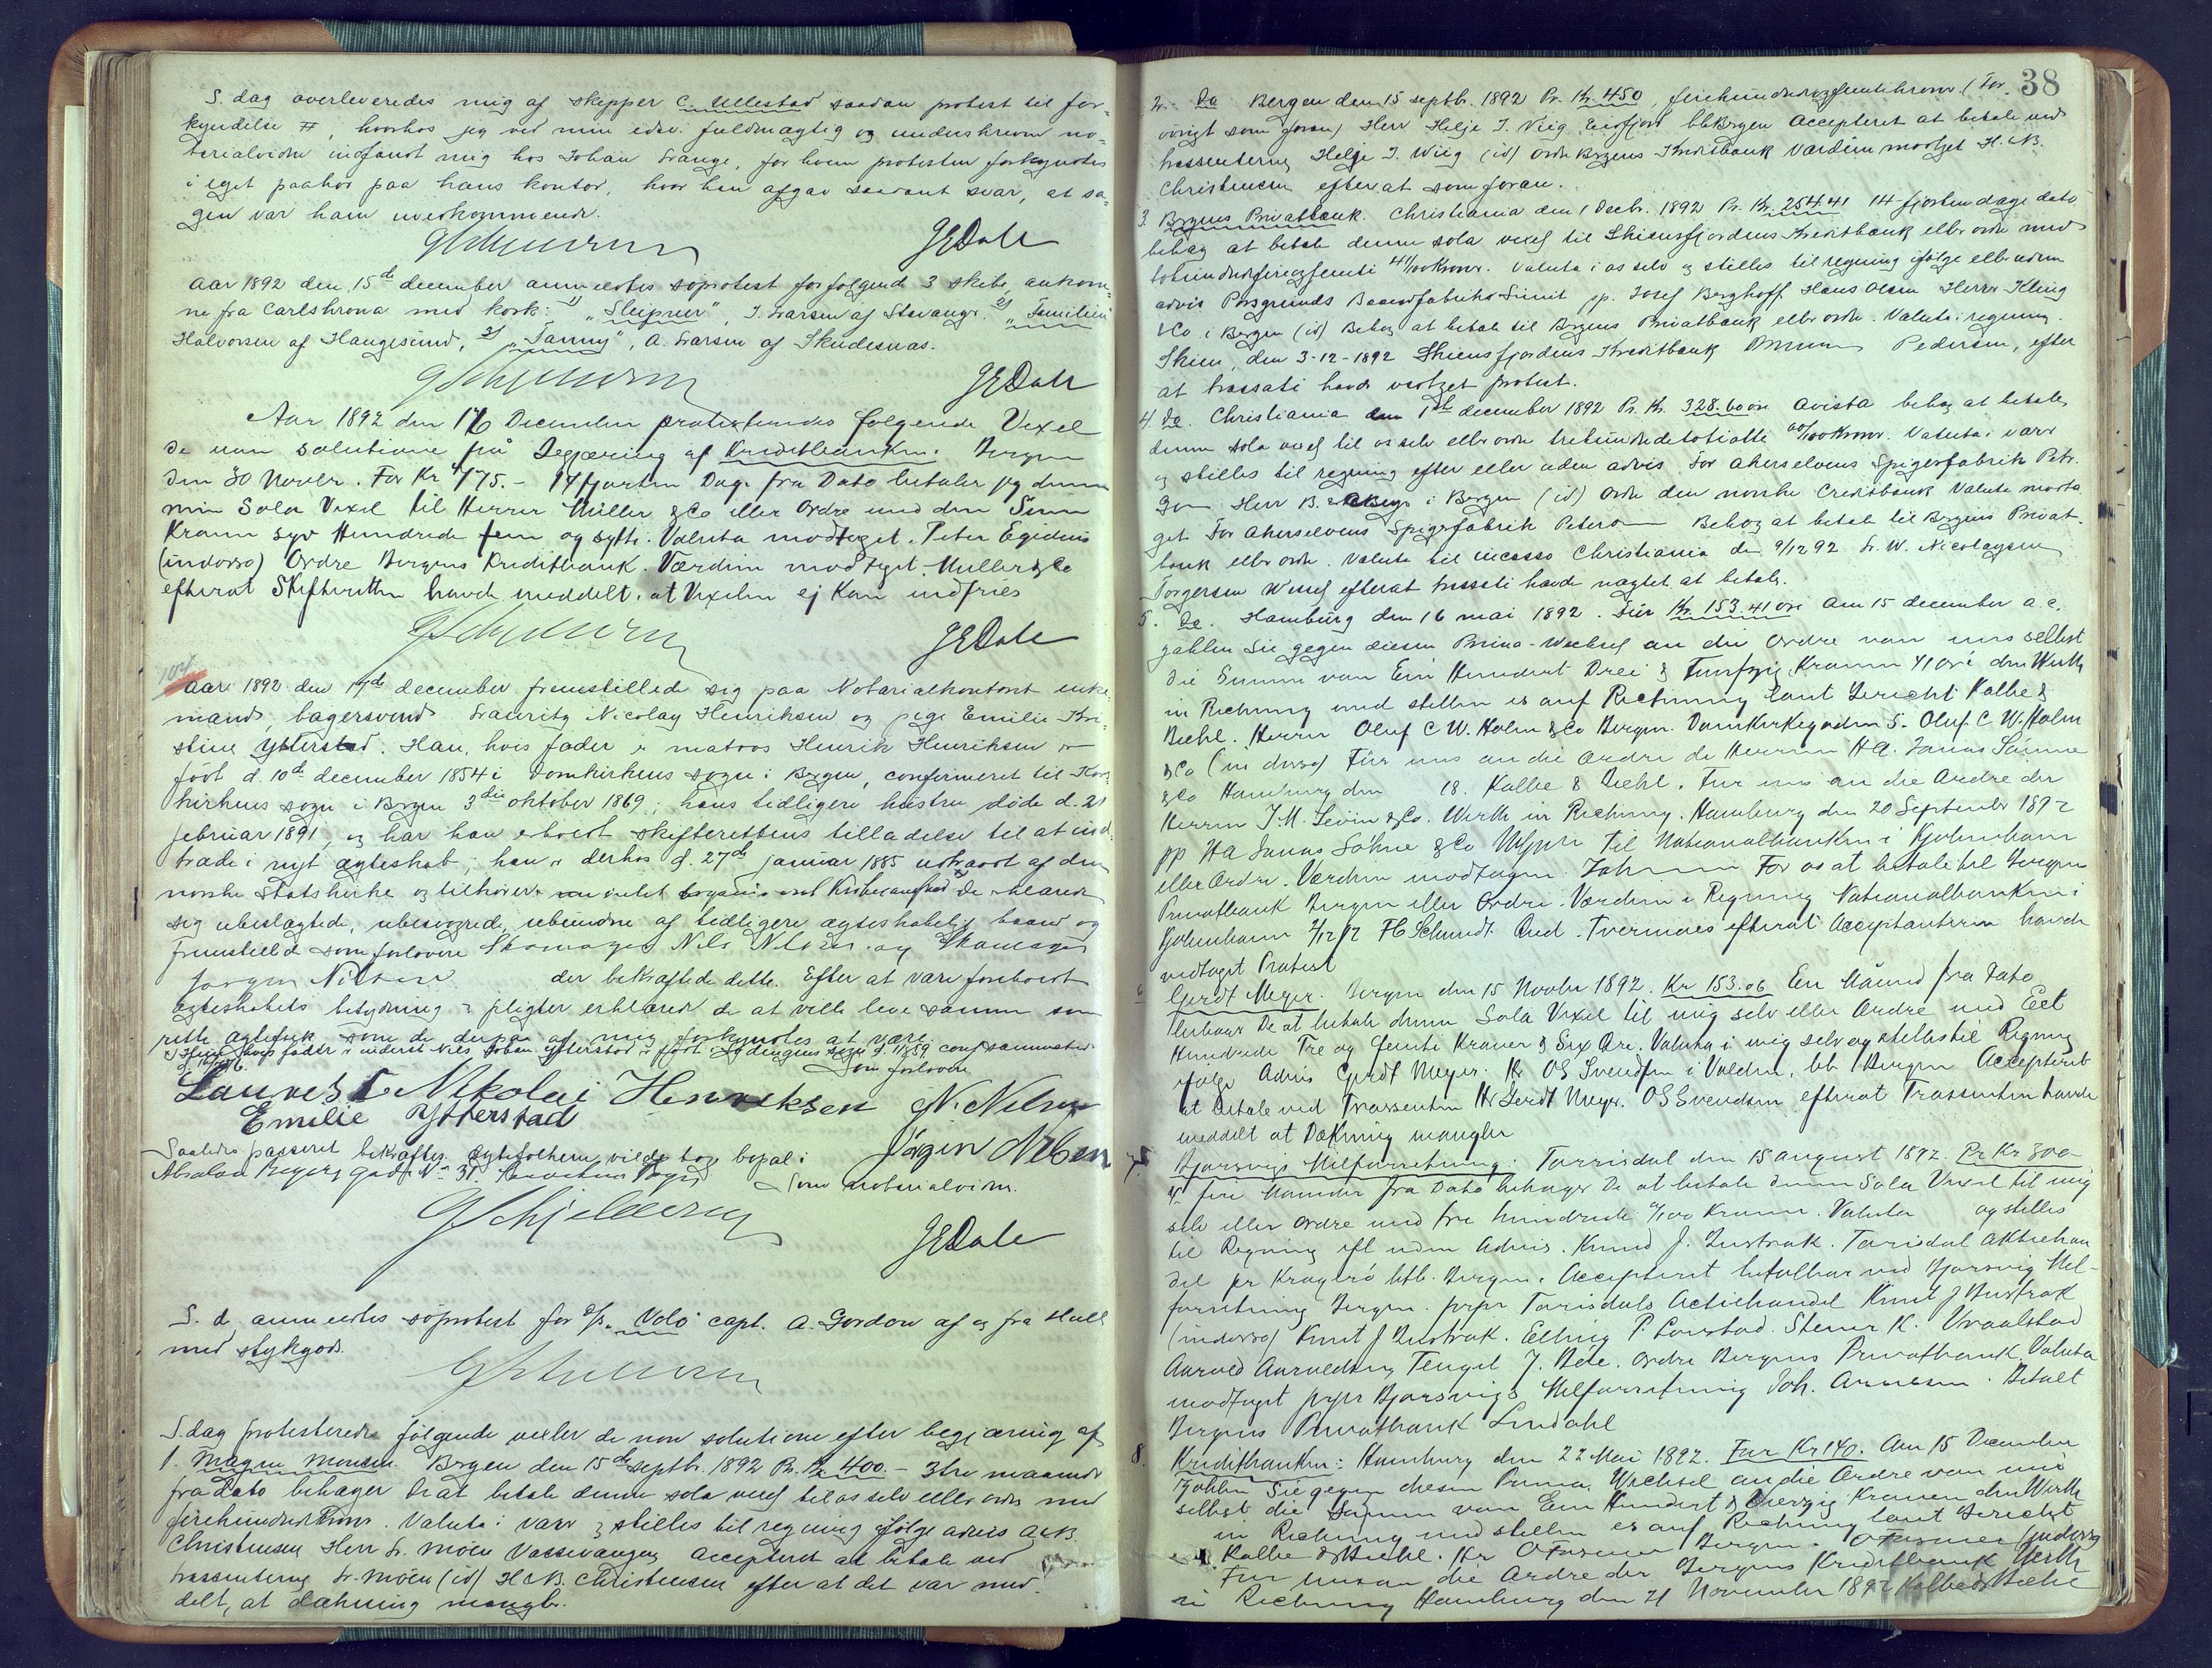 S. dag overleveredes mig af skipper C. Ullestad saadan protest til for-
kyndelse #, hvorhos jeg ved min edsv. fuldmægtig og underskrevne no-
tarialvidne indfandt mig hos Johan Lange, for hvem protesten forkyndtes
i eget paahør paa hans kontor, hvor han afgav saadant svar, at sa-
gen var ham uvedkommende.
JEDahl
Aar 1892 den 15de december anmeldtes søprotest for følgende 3 skibe, ankom-
ne fra Carlskrona med : 1) "Sleipner", J. Larsen af Stavanger. 2) "Familien"
Halvorsen af Haugesund, 3) "Fanny", A. Larsen af Skudesnæs.
JEDahl
Aar 1892 den 16 December protesteredes følgende Vexel
de non solutione på Begjæring af Kreditbanken. Bergen
den 30 Novbr. For Kr 775.- 14 fjorten Dage fra Dato betaler jeg denne
min Sola Vexel til Herrer Müller & Co eller Ordre med den Sum
Kroner syv Hundrede fem og sytti. Valuta modtaget. Peter Egidius
(indosso) Ordre Bergens Kreditbank. Værdien modtaget. Müller & Co
efterat Skifteretten havde meddelt, at Vexelen ej kan indfries
JEDahl
104
Aar 1892 den 17de december fremstillede sig paa Notarialkontoret enke-
mand, bagersvend Lauritz Nicolay Henriksen og pige Emilie Kri-
stine Ytterstad. Han, hvis fader er matros Henrik Henriksen er
født d. 10de december 1854 i Domkirkens sogn i Bergen, confirmeret til Kor-
kirkens sogn i Bergen 3die oktober 1869; hans tidligere hustru døde d. 21
februar 1891, og har han erhvervet skifterettens tilladelse til at ind-
træde i nyt ægteskab; han er derhos d. 27de januar 1885 udtraadt af den
norske Statskirke og tilhører nu intet De erklærede
sig ubeslægtede, ubesvogrede, ubundne af tidligere ægteskabelige baand og
fremstillede som forlovere Skomager Nils Nilsen og Skomager
Jørgen Nilsen der bekræftede dette. Efter at være foreholdt
ægteskabets betydning & pligter erklærede de at ville leve sammen som
rette ægtefolk som de derpaa af mig forkyndtes at være.
Hun, hvis fader er inderst Nils Johan Ytterstad er født i Lødingens sogn d. 1859 conf sammesteds
Som forlovere
Laurets Nikolai Henreksen N. Nilsen
Emilie Ytterstad Jörgen Nilsen
Saaledes passeret bekræftes. Ægtefolkene vilde tage bopæl i
Absalon Beyers gade No 31. Som notarialvidne.
GSchjelderup
JEDahl
S. d. anmeldtes søprotest for D/S. "Volo" capt. A. Gordon af og fra Hull
med stykgods.
S. dag protesteredes følgende vexler de non solutione efter begjæring af
1. Magne Monsen. Bergen den 15de septbr. 1892 Pr. Kr. 400.- 3 tre maaneder
fra dato behager De at betale denne sola vexel til os selv eller ordre med
firehundrede Kroner. Valuta i varer & stilles til regning ifølge advis A & B.
Christensen Herr L. Møen Vossevangen Accepteret at betale ved
trassenterne L. Møen (id) H & B. Christensen efter at det var med-
delt, at dækning mangler.
38
2. Do Bergen den 15 septbr. 1892 Pr. Kr. 450, firehundredeogfemtikroner. (For-
øvrigt som foran) Herr Helje J. Viig Eidfjord bbBergen Accepteret at betale ved
trassenterne Helge J. Wiig (id) Ordre Bergens Kreditbank Værdien modtaget H. & B.
Christensen efterat som foran.
3. Bergens Privatbank. Christiania den 1 Decbr. 1892 Pr. Kr. 254.41 14 fjorten dage dato
behag at betale denne sola vexel til Skiensfjordens Kreditbank eller ordre med
tohundredefireogfemti 41/100 Kroner. Valuta i os selv og stilles til regning ifølge eller uden
advis Porsgrunds pp. Josef Berghoff Hans Olsen Herrer Kling
& Co i Bergen (id) Behag at betale til Bergens Privatbank eller ordre. Valuta i regning.
Skien, den 3-12-1892 Skiensfjordens Kreditbank Pedersen, efter
at trassati havde vedtaget protest.
4. Do. Christiania den 1ste december 1892 Pr. Kr. 328.60 øre Avista behag at betale
denne sola vexel til os selv eller ordre trehundredetotiotte 60/100 Kroner. Valuta i varer
og stilles til regning efter eller uden advis For Akerselvens Spigerfabrik Petr.
Herr B. i Bergen (id) Ordre den norske Creditbank Valuta modta-
get For Akerselvens Spigerfabrik Behag at betale til Bergens Privat-
bank eller ordre. Valuta til incasso Christiania den 9/12 92 L. W. Nicolaysen
Torgersen Wessel efterat trassati havde nægtet at betale.
5. Do. Hamburg den 16 mai 1892. Für Kr. 153.41 øre Am 15 december a. c.
zahlen Sie gegen diesen Prima-Wechsel an die Ordre von uns selbst
die Summe von Ein Hundert Drei & Funfzig Kronen 41 öre den Werth
in Rechnung und stellen es auf Rechnung laut Bericht Kalbe &
Biehl. Herrn Oluf C W. Holm & Co Bergen. Domkirkegaden 5. Oluf C W. Holm
& Co (in dosso) Für uns an die Ordre de Herren H A. Jonas Söhne
& Co Hamburg den 18. Kalbe & Biehl. Fur uns an die Ordre der
Herren J. M. Levin & Co. Werth in Rechnung. Hamburg den 20 September 1892
pp H A Jonas Söhne & Co Til Nationalbanken i Kjøbenhavn
eller Ordre. Værdien modtagen. For os at betale til Bergens
Privatbank Bergen eller Ordre. Værdien i Regning Nationalbanken i
Kjøbenhavn 2/12 92 F C Schmidt Aud. Tvermoes efterat Acceptanterne havde
vedtaget Protest
6 Gerdt Meyer. Bergen den 15 Novbr 1892. Kr 153.06 En Måned fra Dato
behager De at betale denne Sola Vexel til mig selv eller Ordre med Eet
Hundrede Tre og femti Kroner & Sex Øre. Valuta i mig selv og stilles til Regning
ifølge Advis Gerdt Meyer. Hr O S Svendsen i Volden, bb Bergen Accepteret
at betale ved Trassenten Hr Gerdt Meyer. O S Svendsen efterat Trassenten havde
meddelt at Dækning mangler
7. Bjorsvigs Melforretning. Torrisdal den 15 august 1892. Pr Kr 300-
4 fire Maaneder fra Dato behager De at betale denne Sola Vexel til mig
selv eller ordre med tre hundrede 0/100 Kroner. Valuta og stilles
til Regning efl uden Advis. Knud J. Bustrak. Torrisdal Aktiehan
del pr Kragerö bb. Bergen. Accepteret betalbar ved Bjorsvig Mel-
forretning Bergen. prpr Torisdals Actiehandel Knut J Bustrak
(indosso) Knut J Bustrak. Elling P. Lonstad. Stener K. Vraalstad
Aarold Aarolden, Tengel J. Ordre Bergens Privatbank Valuta
modtaget prpr Bjorsvigs Melforretning Joh. Arnesen. Betalt
Bergens Privatbank Lindahl
8. Kreditbanken: Hamburg den 22 Mai 1892. Fur Kr 140. Am 15 December
zahlen Sie gegen diesen Prima Wechsel an die Ordre von uns
selbst die Summe von Ein Hundert & vierzig Kronen den Werth
in Rechnung und stellen es auf Rechnung laut Bericht
Kalbe & Biehl. Hr Bergen. (indosso)
Fur uns an die Ordre der Bergens Kreditbank Werth
in Rechnung Hamburg den 21 November 1892 Kalbe & Biehl